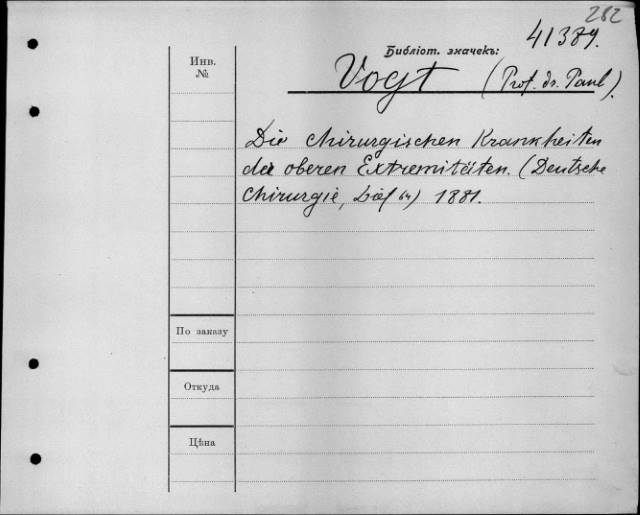 282
41389.
Библіот. значекъ:
Инв.
№
Vogt (Prof. dr. Paul).
Die chirurgischen Krankheiten
der oberen Extremitäten. (Deutsche
Chirurgie, Lief 64) 1881.
По заказу
Откуда
Цѣна